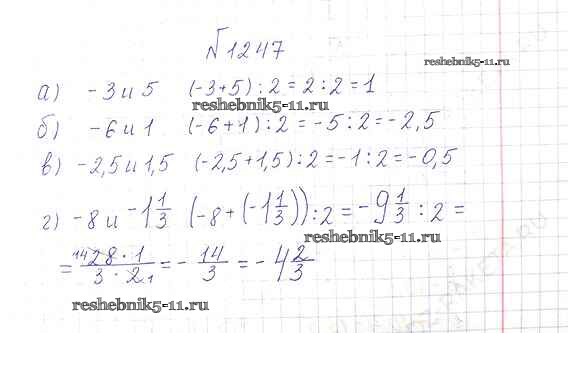 №1247
reshebnik5-11.ru
а) -3 и 5 (-3+5):2=2:2=1
reshebnik5-11.ru
б) -6 и 1 (-6+1):2=-5:2=-2,5
в) -2,5 и 1,5 (-2,5+1,5):2=-1:2=-0,5
г) -8 и -1 1/3 (-8+(-1 1/3)):2=-9 1/3:2=
reshebnik5-11.ru
= 14 28·1/3·2 1 =- 14/3 =-4 2/3
reshebnik5-11.ru